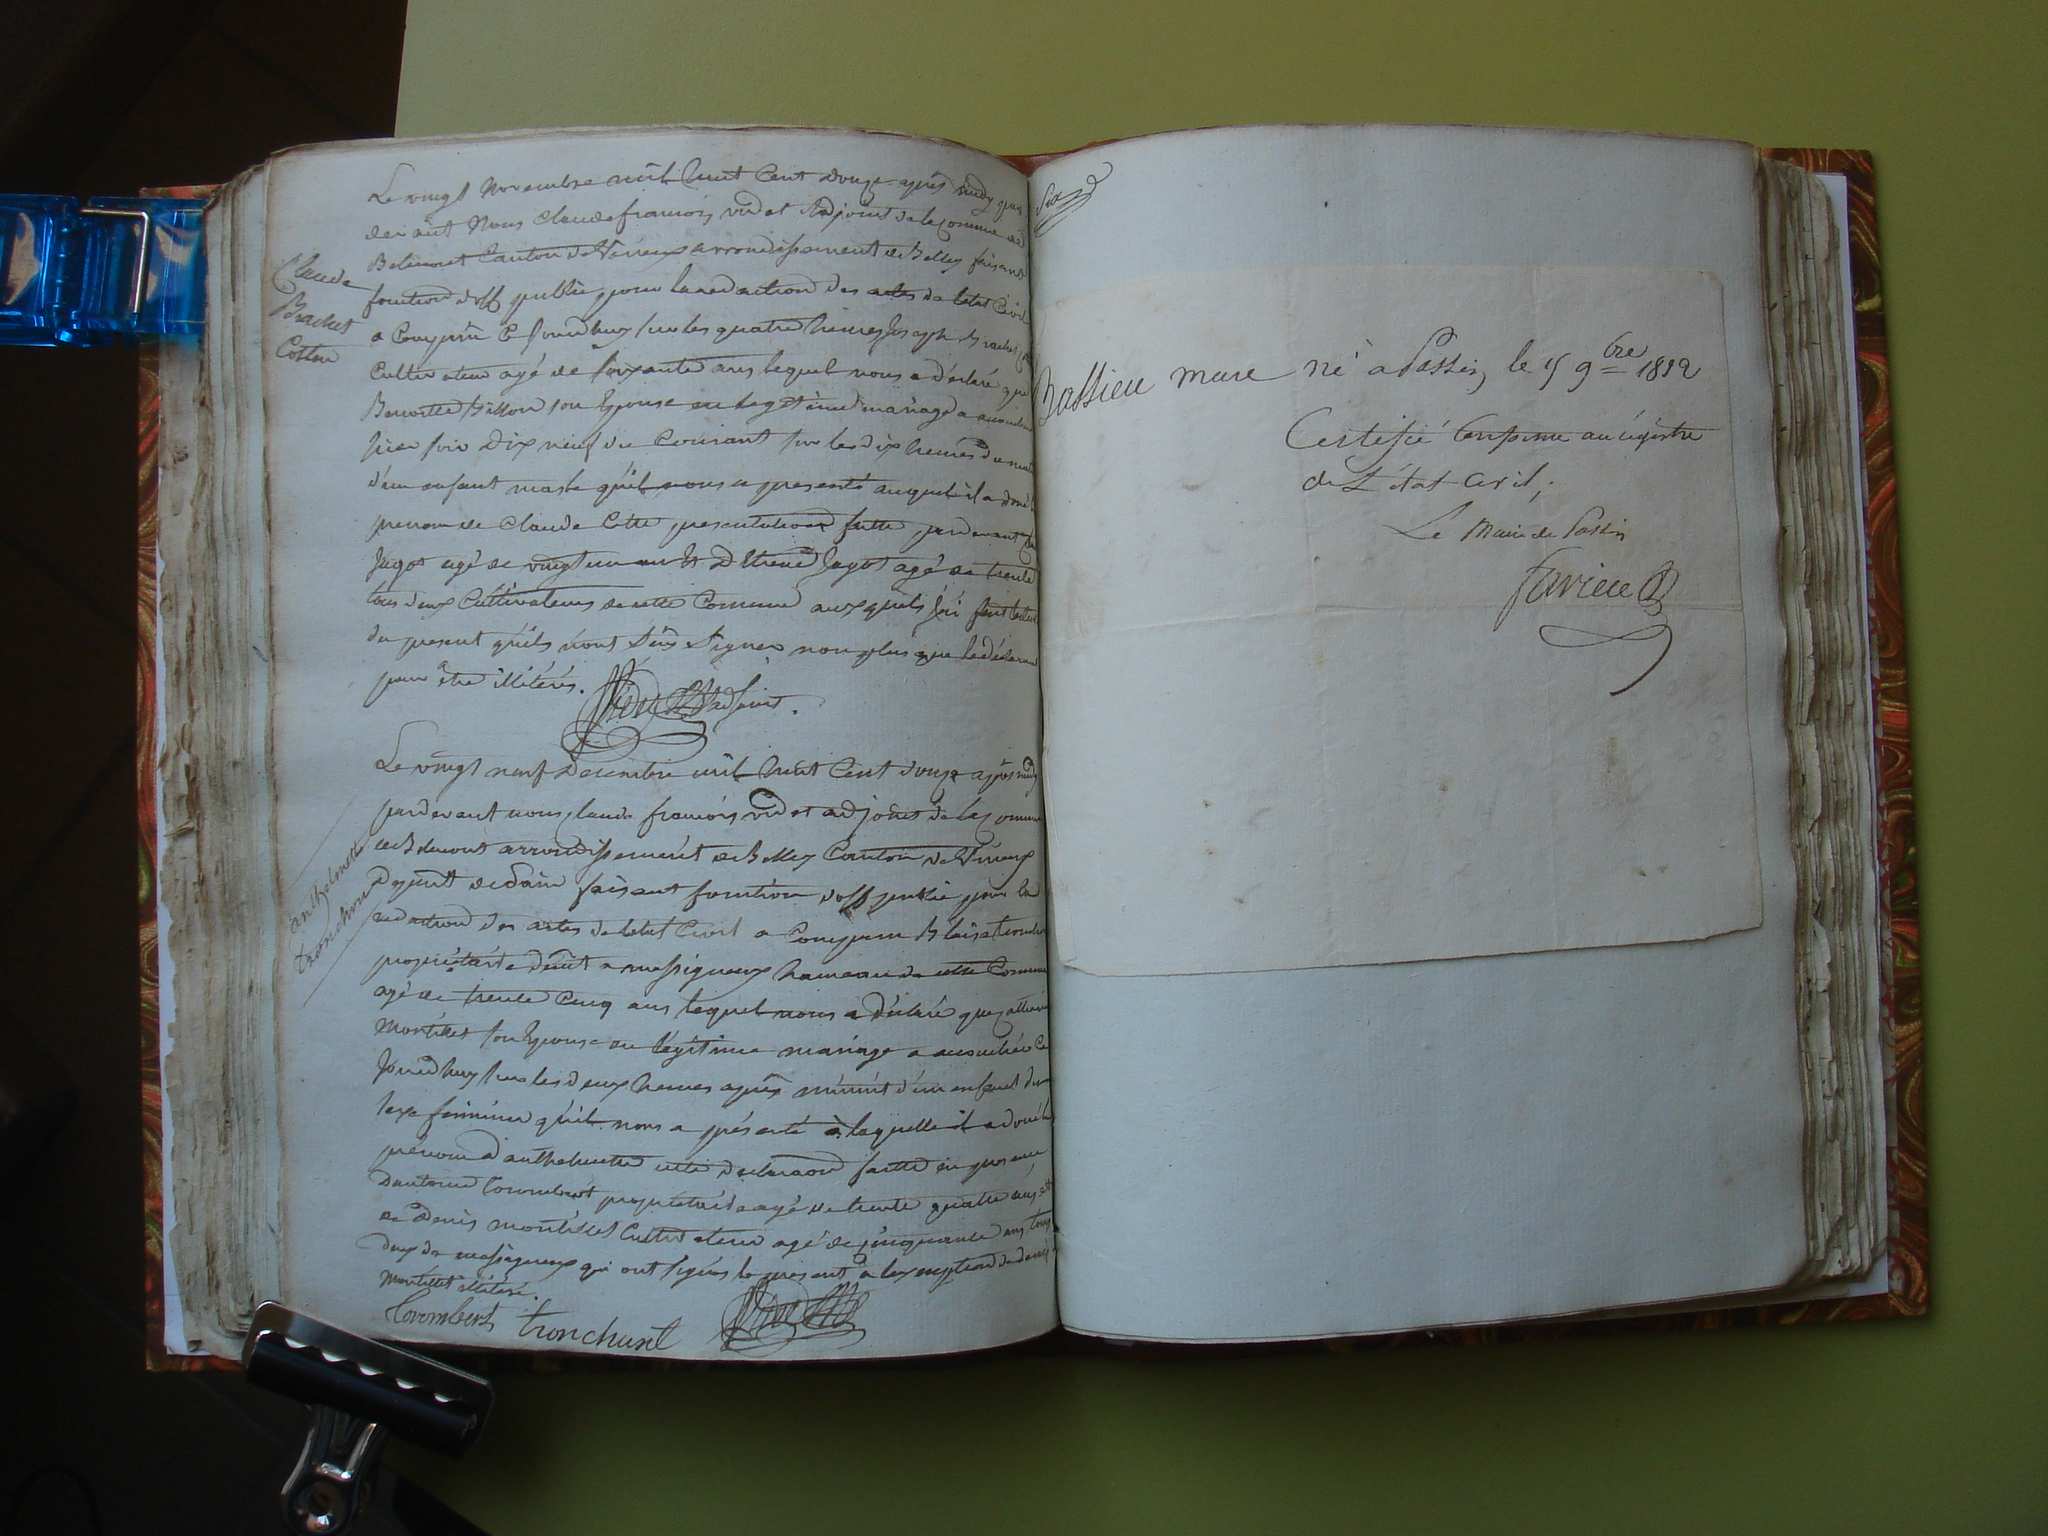 Le vingt Novembre mil huit Cent douze après midy par
devant Nous Claude françois videt Adjoint de la Comune de
Belmont Canton de Virieux arrondissement de Belley faisant
fonction d'off public pour la redaction des actes de letat Civil
a Comparu Ce Jourdhuy sur les quatre heures Joseph Brachet
Cultivateur agé de soixante ans lequel nous a déclaré que
Benoitte son Epouse en legitime mariage a accouché
hier soir Dix neuf du Courant sur les dix heures du
d'un enfant masle qu'il nous a presenté auquel il a doné le
prenom de Claude Cette presentation faitte pardevant
Jugot agé de vingt un ans Et D'Etienne Jugot agé de trente
tous deux Cultivateurs de cette Commune auxquels J'ai fait lecture
du present qu'ils n'ont Signer non plus que le déclarant
pour être illitérés.
Videt Adjoint.
Claude
Brachet
Cotton
Le vingt neuf Decembre mil huit Cent douze après midy
pardevant nous Claude françois videt adjoint de la Comune
de Belmont arrondissement de Belley Canton de Virieux
Depart de L'ain faisant fonction d'off public pour la
redaction des actes de letat Civil a Comparu Blaise tronchon
propriétaire a massigneux hameau de cette Commune
agé de trente Cinq ans lequel nous a déclaré que
Montillet son Epouse en légitime mariage a accouchée Ce
Jourdhuy sur les deux heures après minuit d'un enfant du
sexe feminin qu'il nous a présenté à laquelle il a doné le
prénom d'anthelmette cette declaraon faitte en presence
D'antoine Corombert propriétaire agé de trente quatre ans et
de Denis montillet Cultivateur agé de cinquante ans tous
deux de massigneux qui ont signés le present a lexception de denis
Montillet illitéré.
Corombert tronchant Videt
anthelmette
tronchon
Bassieu mare né a Passin le 15 9bre 1812
Certifié Conforme au régistre
de L'état civil,
Le Maire de Passin
favier